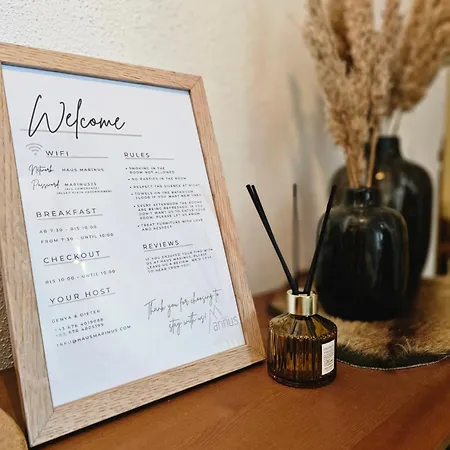 Welcome
WIFI
Network HAUS MARINUS
Password
BREAKFAST
AB 7:30 - BIS 10:00
FROM 7:30 - UNTIL 10:00
CHECKOUT
BIS 10:00 - UNTIL 10:00
YOUR HOST
RULES
• SMOKING IN THE
ROOM NOT ALLOWED
• NO PARTIES IN THE
• RESPECT THE SILENCE AT NIGHT
• TOWELS ON THE BATHROOM
FLOOR IF YOU WANT NEW ONES
• EVERY AFTERNOON THE ROOMS
• TREAT FURNITURE WITH LOVE
AND RESPECT
REVIEWS
IF YOU ENJOYED YOUR TIME WITH
US AT HAUS MARINUS, PLEASE
LEAVE US A REVIEW. WE'D LOVE
TO HEAR FROM YOU
Thank you for choosing to
stay with us!